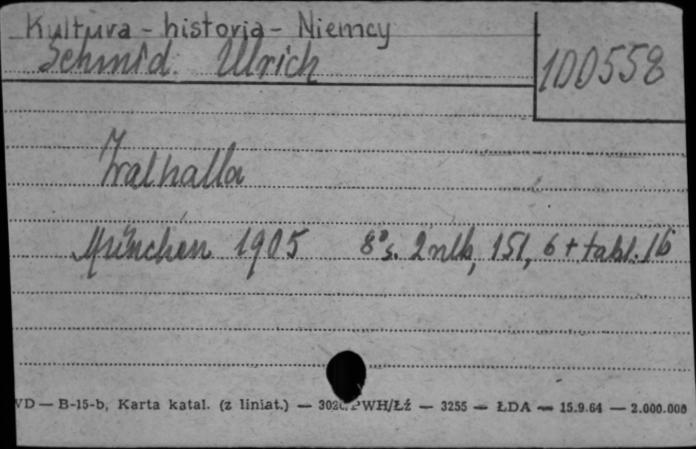 Kultura - historia - Niemcy
Schmid. Ullrich
100558
Walhalla
München 1905 8° s. 2 nlb, 151, 6 + tabl. 16
WD — B-15-b, Karta katal. (z liniat.) — PWH/Łź — 3255 — ŁDA — 15.9.64 — 2.000.000